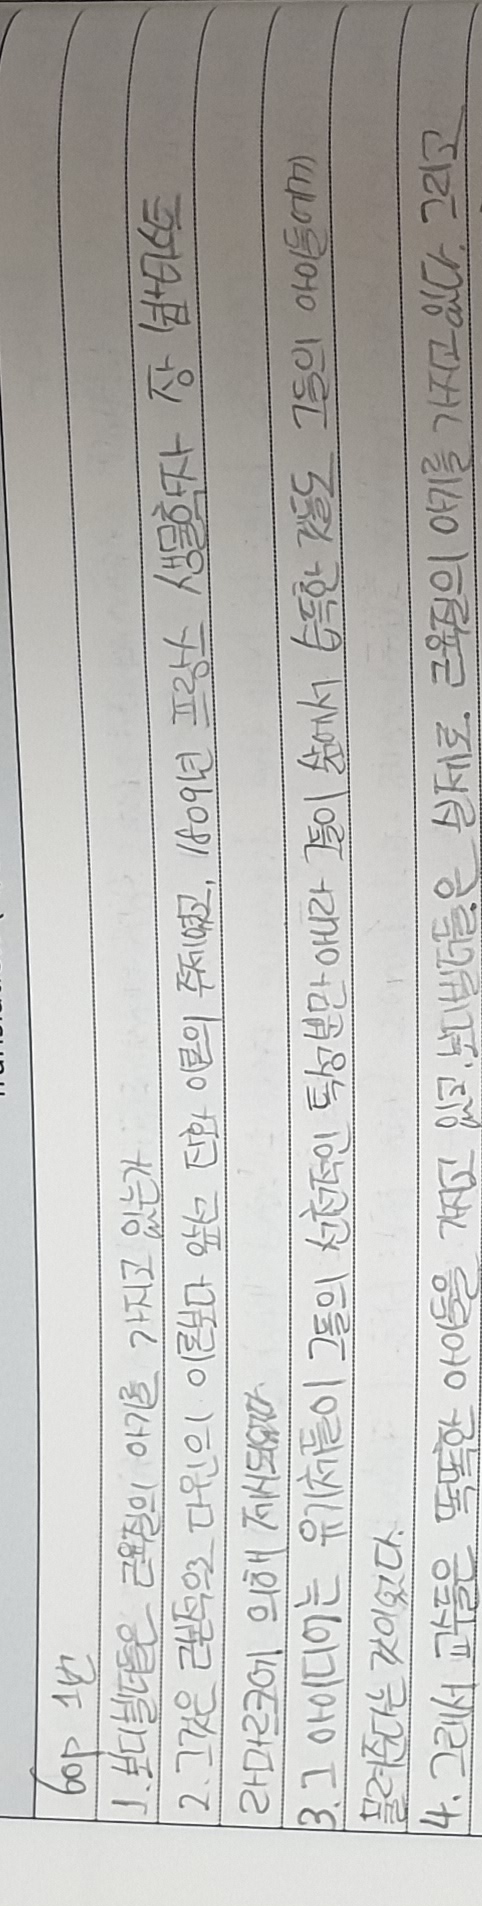 60p 1번
1. 보디빌더들은 근육질의 아기를 가지고 있는가
2. 그것은 근본적으로 다윈의 이론보다 앞선 진화 이론의 주제였고, 1809년 프랑스 생물학자 장 밥티스트
라마르크에 의해 제시되었다.
3. 그 아이디어는 유기체들이 그들의 선천적인 특성뿐만 아니라 그들이 삶에서 습득한 것들도 그들의 아이들에게
물려준다는 것이었다.
4. 그래서 교수들은 똑똑한 아이들을 가지고 있고, 보디빌더들은 실제로 근육질의 아기를 가지고 있다. 그리고